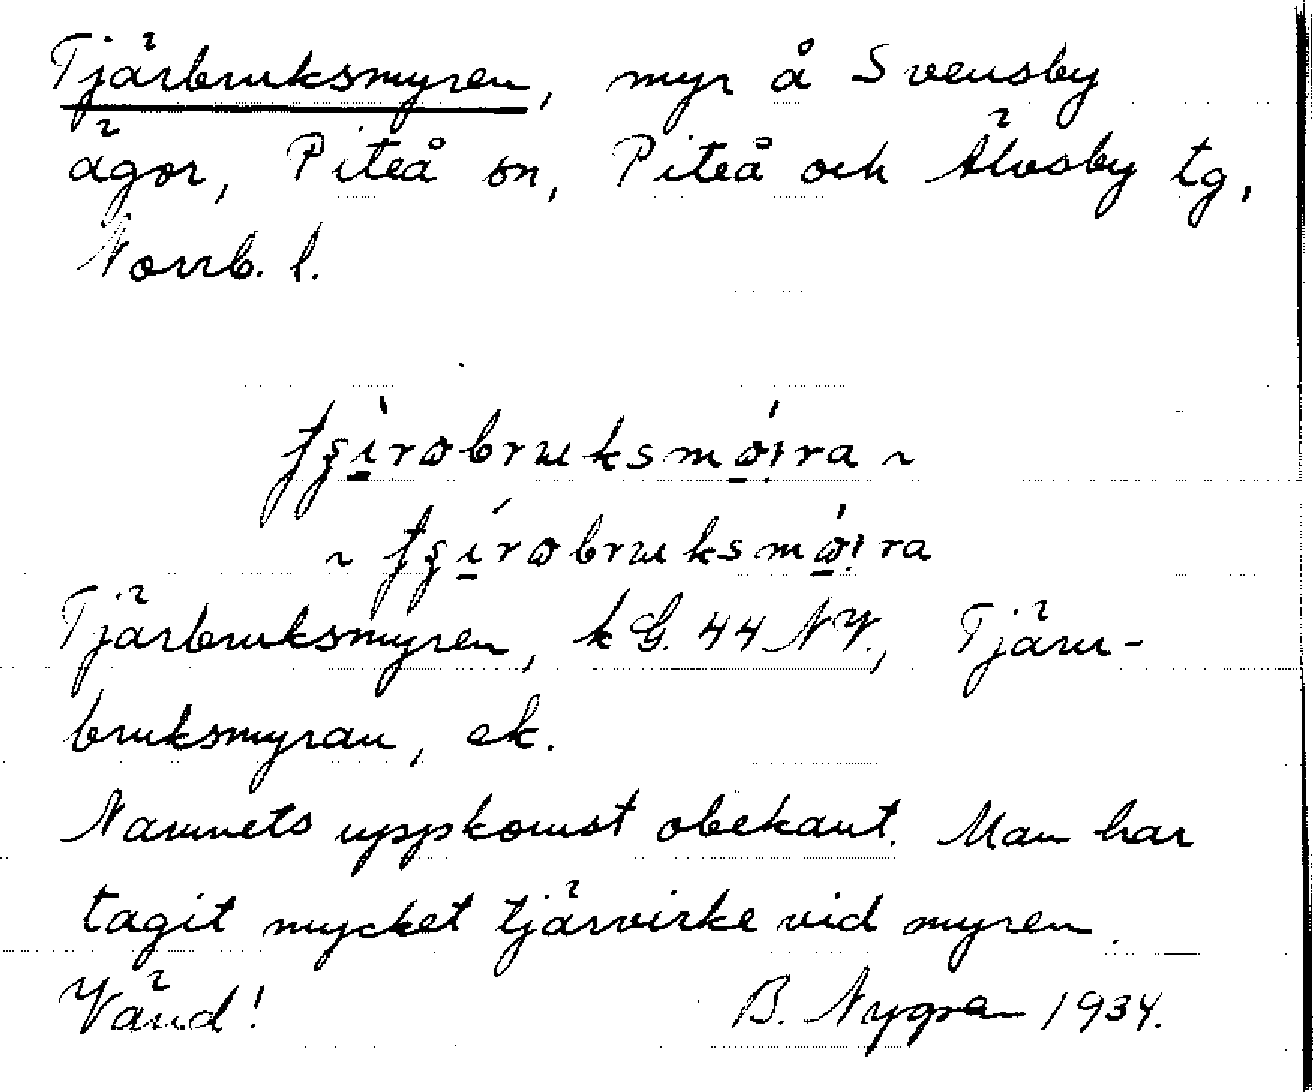 Tjärbruksmyren, myr å Svensby
ägor, Piteå sn, Piteå och Älvsby tg,
Norrb. l.
~
~
Tjärbruksmyren, k G. 44 NV., Tjäru-
bruksmyran, ek.
Namnets uppkomst obekant. Man har
tagit mycket tjärvirke vid myren.
Vänd! B. Nygren 1934.